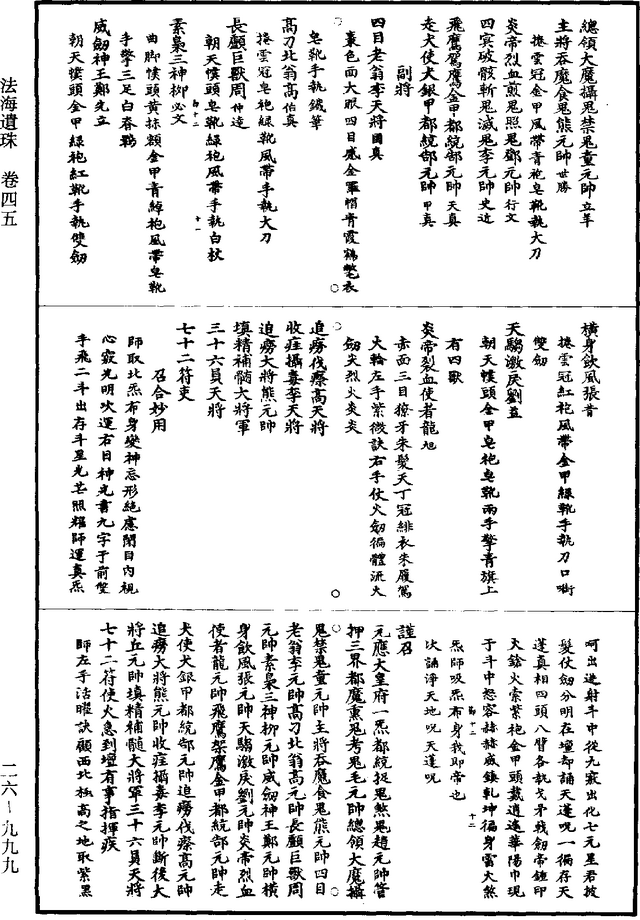 法海遺珠 卷四五
二六－九九九
總領大魔攝鬼禁鬼童元帥立羊
主將吞魔食鬼熊元帥世勝
捲雲冠金甲風帶青袍皂靴執大刀
炎帝烈血煎鬼照鬼鄧元帥行文
四冥破骸斬鬼滅鬼李元帥史近
飛鷹駕鷹金甲都統部元帥天真
走犬使犬銀甲都統部元帥甲真
副將
四目老翁李天將國真
棗色面大眼四目戚金軍帽青霞鶴氅衣
皂靴手執鐵筆
高刀北翁高伯真
捲雲冠皂袍綠靴風帶手執大刀
長顧巨獸周仲達
朝天幞頭皂靴綠袍風帶手執白杖
素梟三神柳必文
曲腳幞頭黃抹額金甲青綽袍風帶皂靴
手擎三足白春鵶
威劒神王鄭先立
朝天幞頭金甲綠袍紅靴手執雙劒
橫身飲風張音
捲雲冠紅袍風帶金甲綠靴手執刀口啣
雙劒
天騶激戾劉益
朝天幞頭金甲皂袍皂靴兩手擎青旗上
有四獸
炎帝裂血使者龍旭
赤面三目獠牙朱髮天丁冠緋衣朱履駕
火輪左手紫微訣右手仗火劒徧體流火
劒尖烈火炎炎
追癆伐瘵高天將
收疰攝毒李天將
追癆大將熊元帥
填精補髓大將軍
三十六員天將
七十二符吏
召合妙用
師取北炁布身變神忘形絕慮閉目內視
心寂光明吹運右目神光書九字于前雙
手飛二斗出存斗星光芒照耀師運真炁
呵出迸射斗中從九竅出化七元星君披
髮仗劒分明在壇却誦天蓬呪一徧存天
蓬真相四頭八臂各執戈矛戟劒帝鐘印
火鈴火索紫袍金甲頭戴逍遙華陽巾現
于斗中怒容赫赫威鎮乾坤徧身雲火煞
炁師吸炁布身我即帝也
次誦淨天地呪天蓬呪
謹召
元應大皇府一炁都統捉鬼煞鬼趙元帥管
押三界都魔熏鬼考鬼毛元帥總領大魔攝
鬼禁鬼童元帥主將吞魔食鬼熊元帥四目
老翁李元帥高刀北翁高元帥長顧巨獸周
元帥素梟三神柳元帥威劒神王鄭元帥橫
身飲風張元帥天騶激戾劉元帥炎帝烈血
使者龍元帥飛鷹架鷹金甲都統部元帥走
犬使犬銀甲都統部元帥追癆伐瘵高元帥
追癆大將熊元帥收疰攝毒李元帥斷後大
將丘元帥填精補髓大將軍三十六員天將
七十二符使火急到壇有事指揮疾
師左手活曜訣顧西北極高之地取紫黑